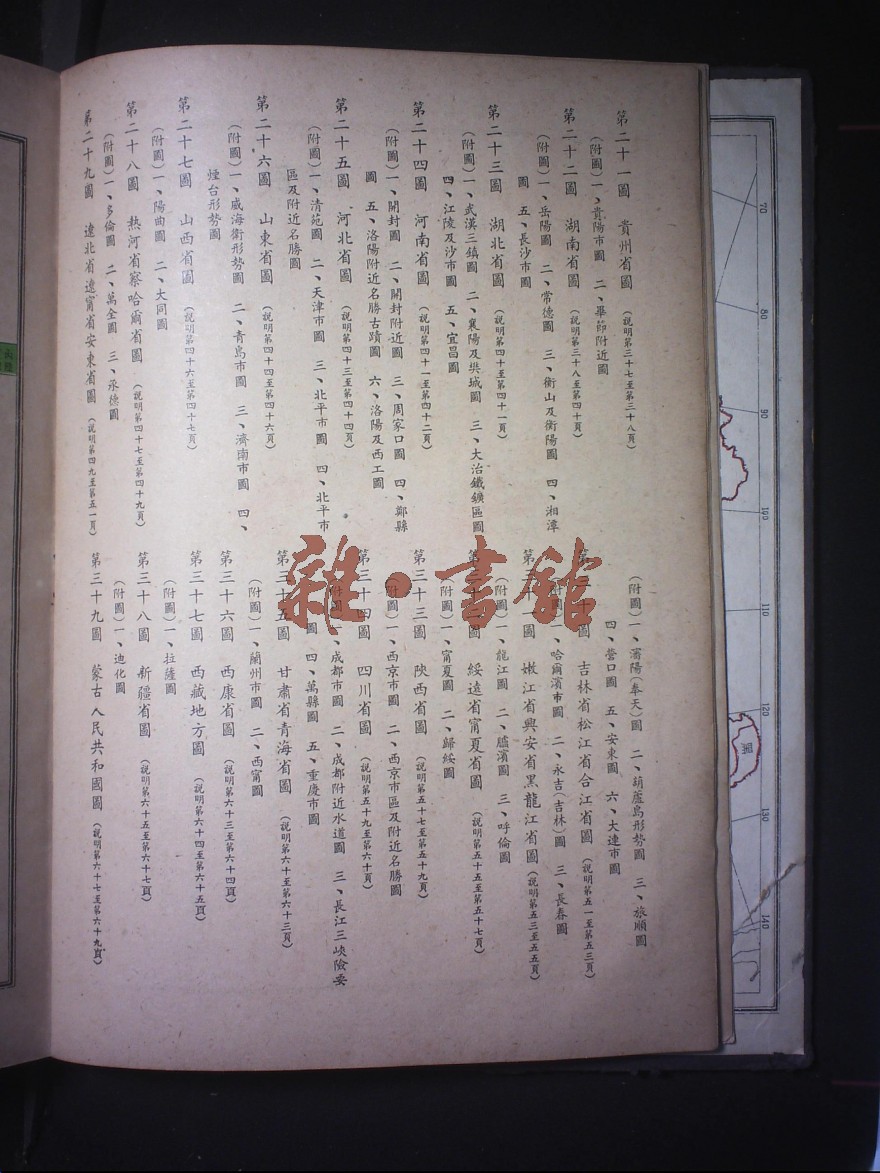 第二十一圖　貴州省圖（說明第三十七至第三十八頁）
（附圖）一、貴陽市圖　二、畢節附近圖
第二十二圖　湖南省圖（說明第三十八至第四十頁）
（附圖）一、岳陽圖　二、常德圖　三、衡山及衡陽圖　四、湘潭
圖　五、長沙市圖
第二十三圖　湖北省圖（說明第四十至第四十一頁）
（附圖）一、武漢三鎮圖　二、襄陽及樊城圖　三、大冶鐵鑛區圖
四、江陵及沙市圖　五、宜昌圖
第二十四圖　河南省圖（說明第四十一至第四十二頁）
（附圖）一、開封圖　二、開封附近圖　三、周家口圖　四、鄭縣
圖　五、洛陽附近名勝古蹟圖　六、洛陽及西工圖
第二十五圖　河北省圖（說明第四十三至第四十四頁）
（附圖）一、清苑圖　二、天津市圖　三、北平市圖　四、北平市
區及附近名勝圖
第二十六圖　山東省圖（說明第四十四至第四十六頁）
（附圖）一、威海衛形勢圖　二、青島市圖　三、濟南市圖　四、
煙台形勢圖
第二十七圖　山西省圖（說明第四十六至第四十七頁）
（附圖）一、陽曲圖　二、大同圖
第二十八圖　熱河省察哈爾省圖（說明第四十七至第四十九頁）
（附圖）一、多倫圖　二、萬全圖　三、承德圖
第二十九圖　遼北省遼甯省安東省圖（說明第四九至第五一頁）
（附圖）一、瀋陽（奉天）圖　二、葫蘆島形勢圖　三、旅順圖
四、營口圖　五、安東圖　六、大連市圖
第三十圖　吉林省松江省合江省圖（說明第五一至第五三頁）
（附圖）一、哈爾濱市圖　二、永吉（吉林）圖　三、長春圖
第三十一圖　嫩江省興安省黑龍江省圖（說明第五三至五五頁）
（附圖）一、龍江圖　二、臚濱圖　三、呼倫圖
第三十二圖　綏遠省甯夏省圖（說明第五十五至第五十七頁）
（附圖）一、甯夏圖　二、歸綏圖
第三十三圖　陝西省圖（說明第五十七至第五十九頁）
（附圖）一、西京市圖　二、西京市區及附近名勝圖
第三十四圖　四川省圖（說明第五十九至第六十頁）
（附圖）一、成都市圖　二、成都附近水道圖　三、長江三峽險要
圖　四、萬縣圖　五、重慶市圖
第三十五圖　甘肅省青海省圖（說明第六十至第六十三頁）
（附圖）一、蘭州市圖　二、西甯圖
第三十六圖　西康省圖（說明第六十三至第六十四頁）
第三十七圖　西藏地方圖（說明第六十四至第六十五頁）
（附圖）一、拉薩圖
第三十八圖　新疆省圖（說明第六十五至第六十七頁）
（附圖）一、迪化圖
第三十九圖　蒙古人民共和國圖（說明第六十七至第六十九頁）
雜·書館
70
80
90
100
110
120
130
140